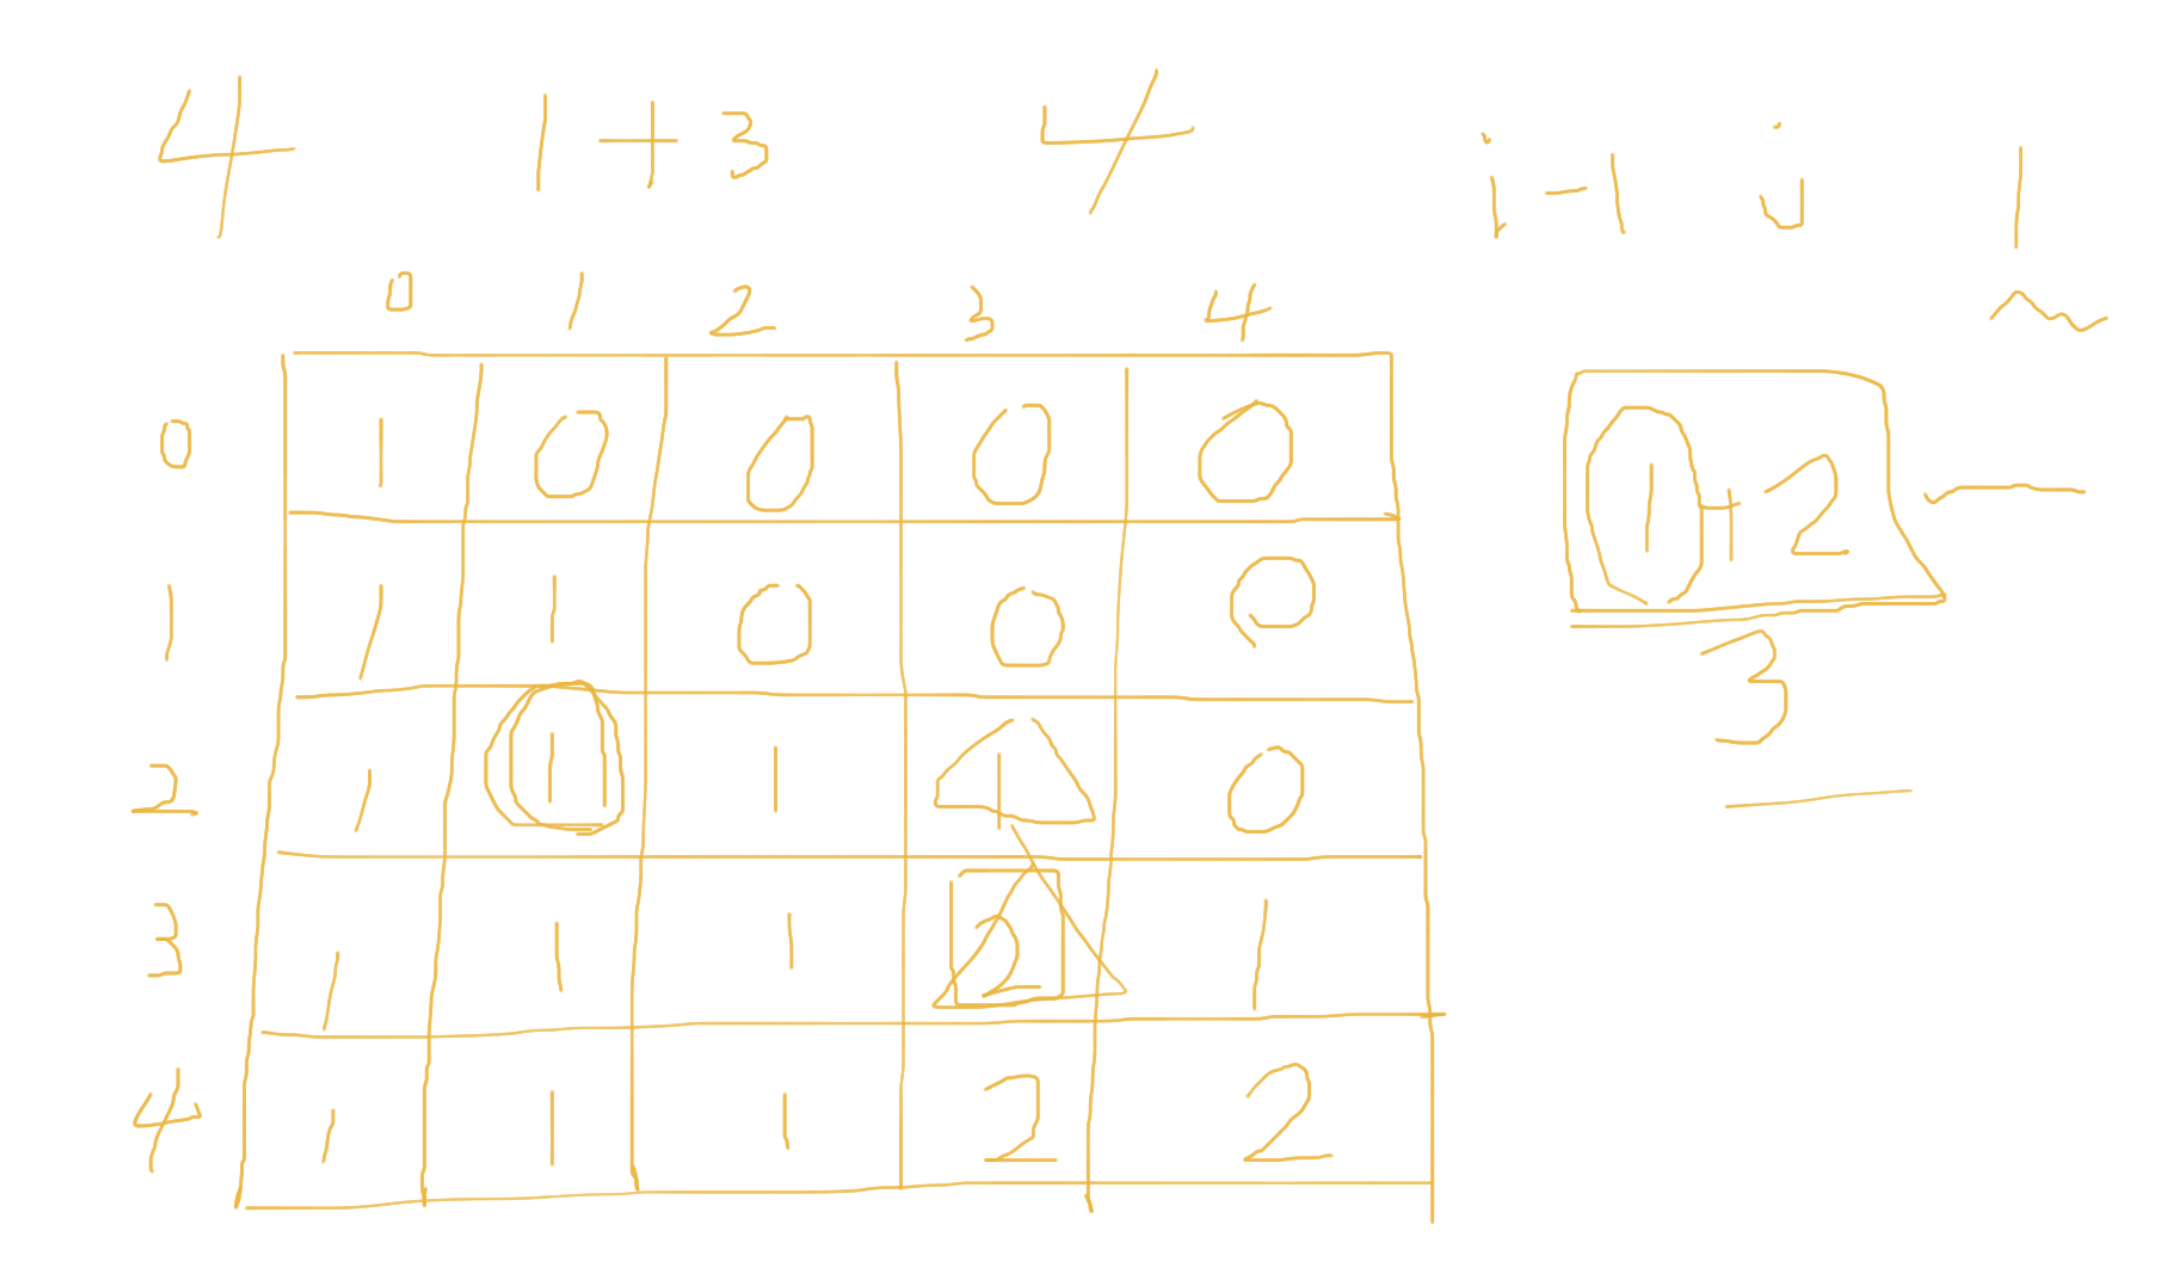 4 1+3 4 i-1 j 1
0 1 2 3 4
0 1 0 0 0 0
1+2
1 1 1 0 0 0
3
2 1 1 1 1 0
3 1 1 1 2 1
4 1 1 1 2 2